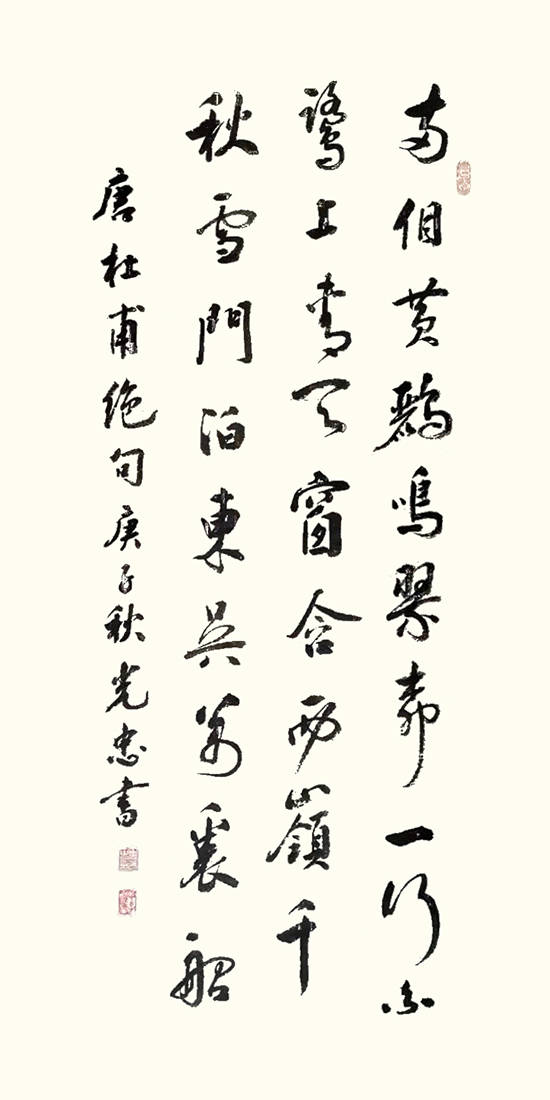 兩個黃鸝鳴翠柳一行白
鷺上青天窗含西嶺千
秋雪門泊東吳萬裏船
唐杜甫絕句庚子秋光忠書